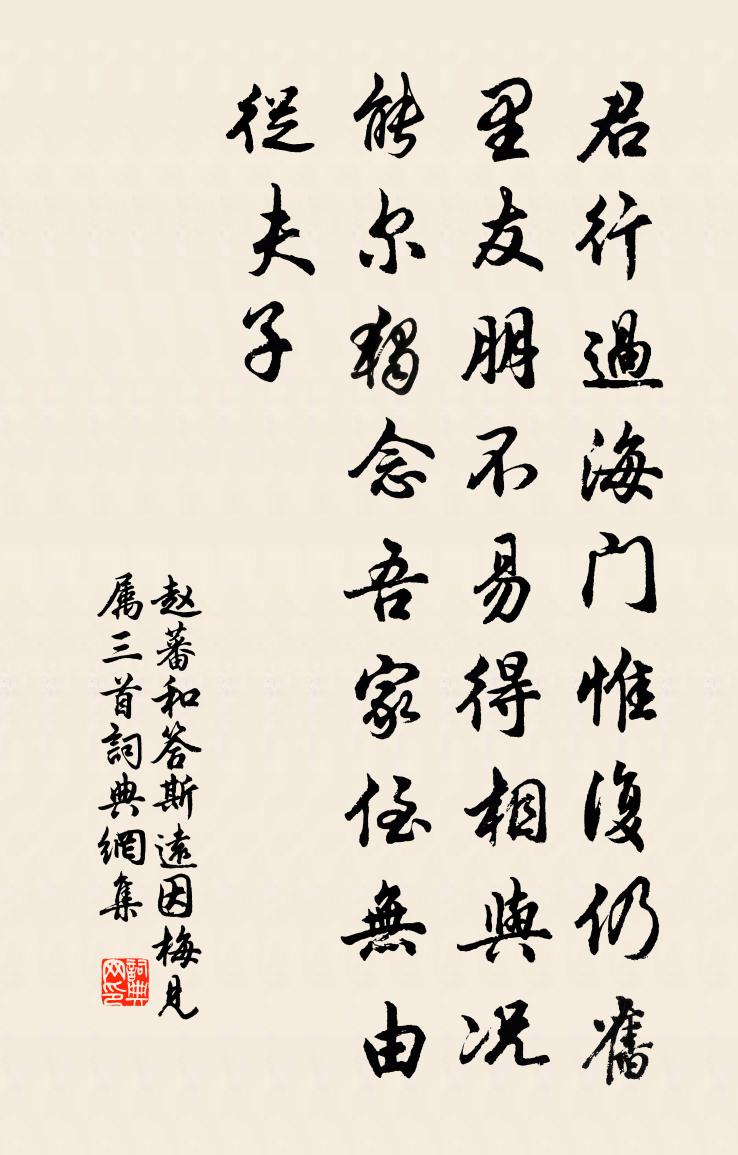 君行過海門惟復仍舊
里友朋不易得相與况
能尔獨念吾家侄無由
從夫子
赵蕃和答斯遠因梅見
属三首詞典網集
詞典
网印